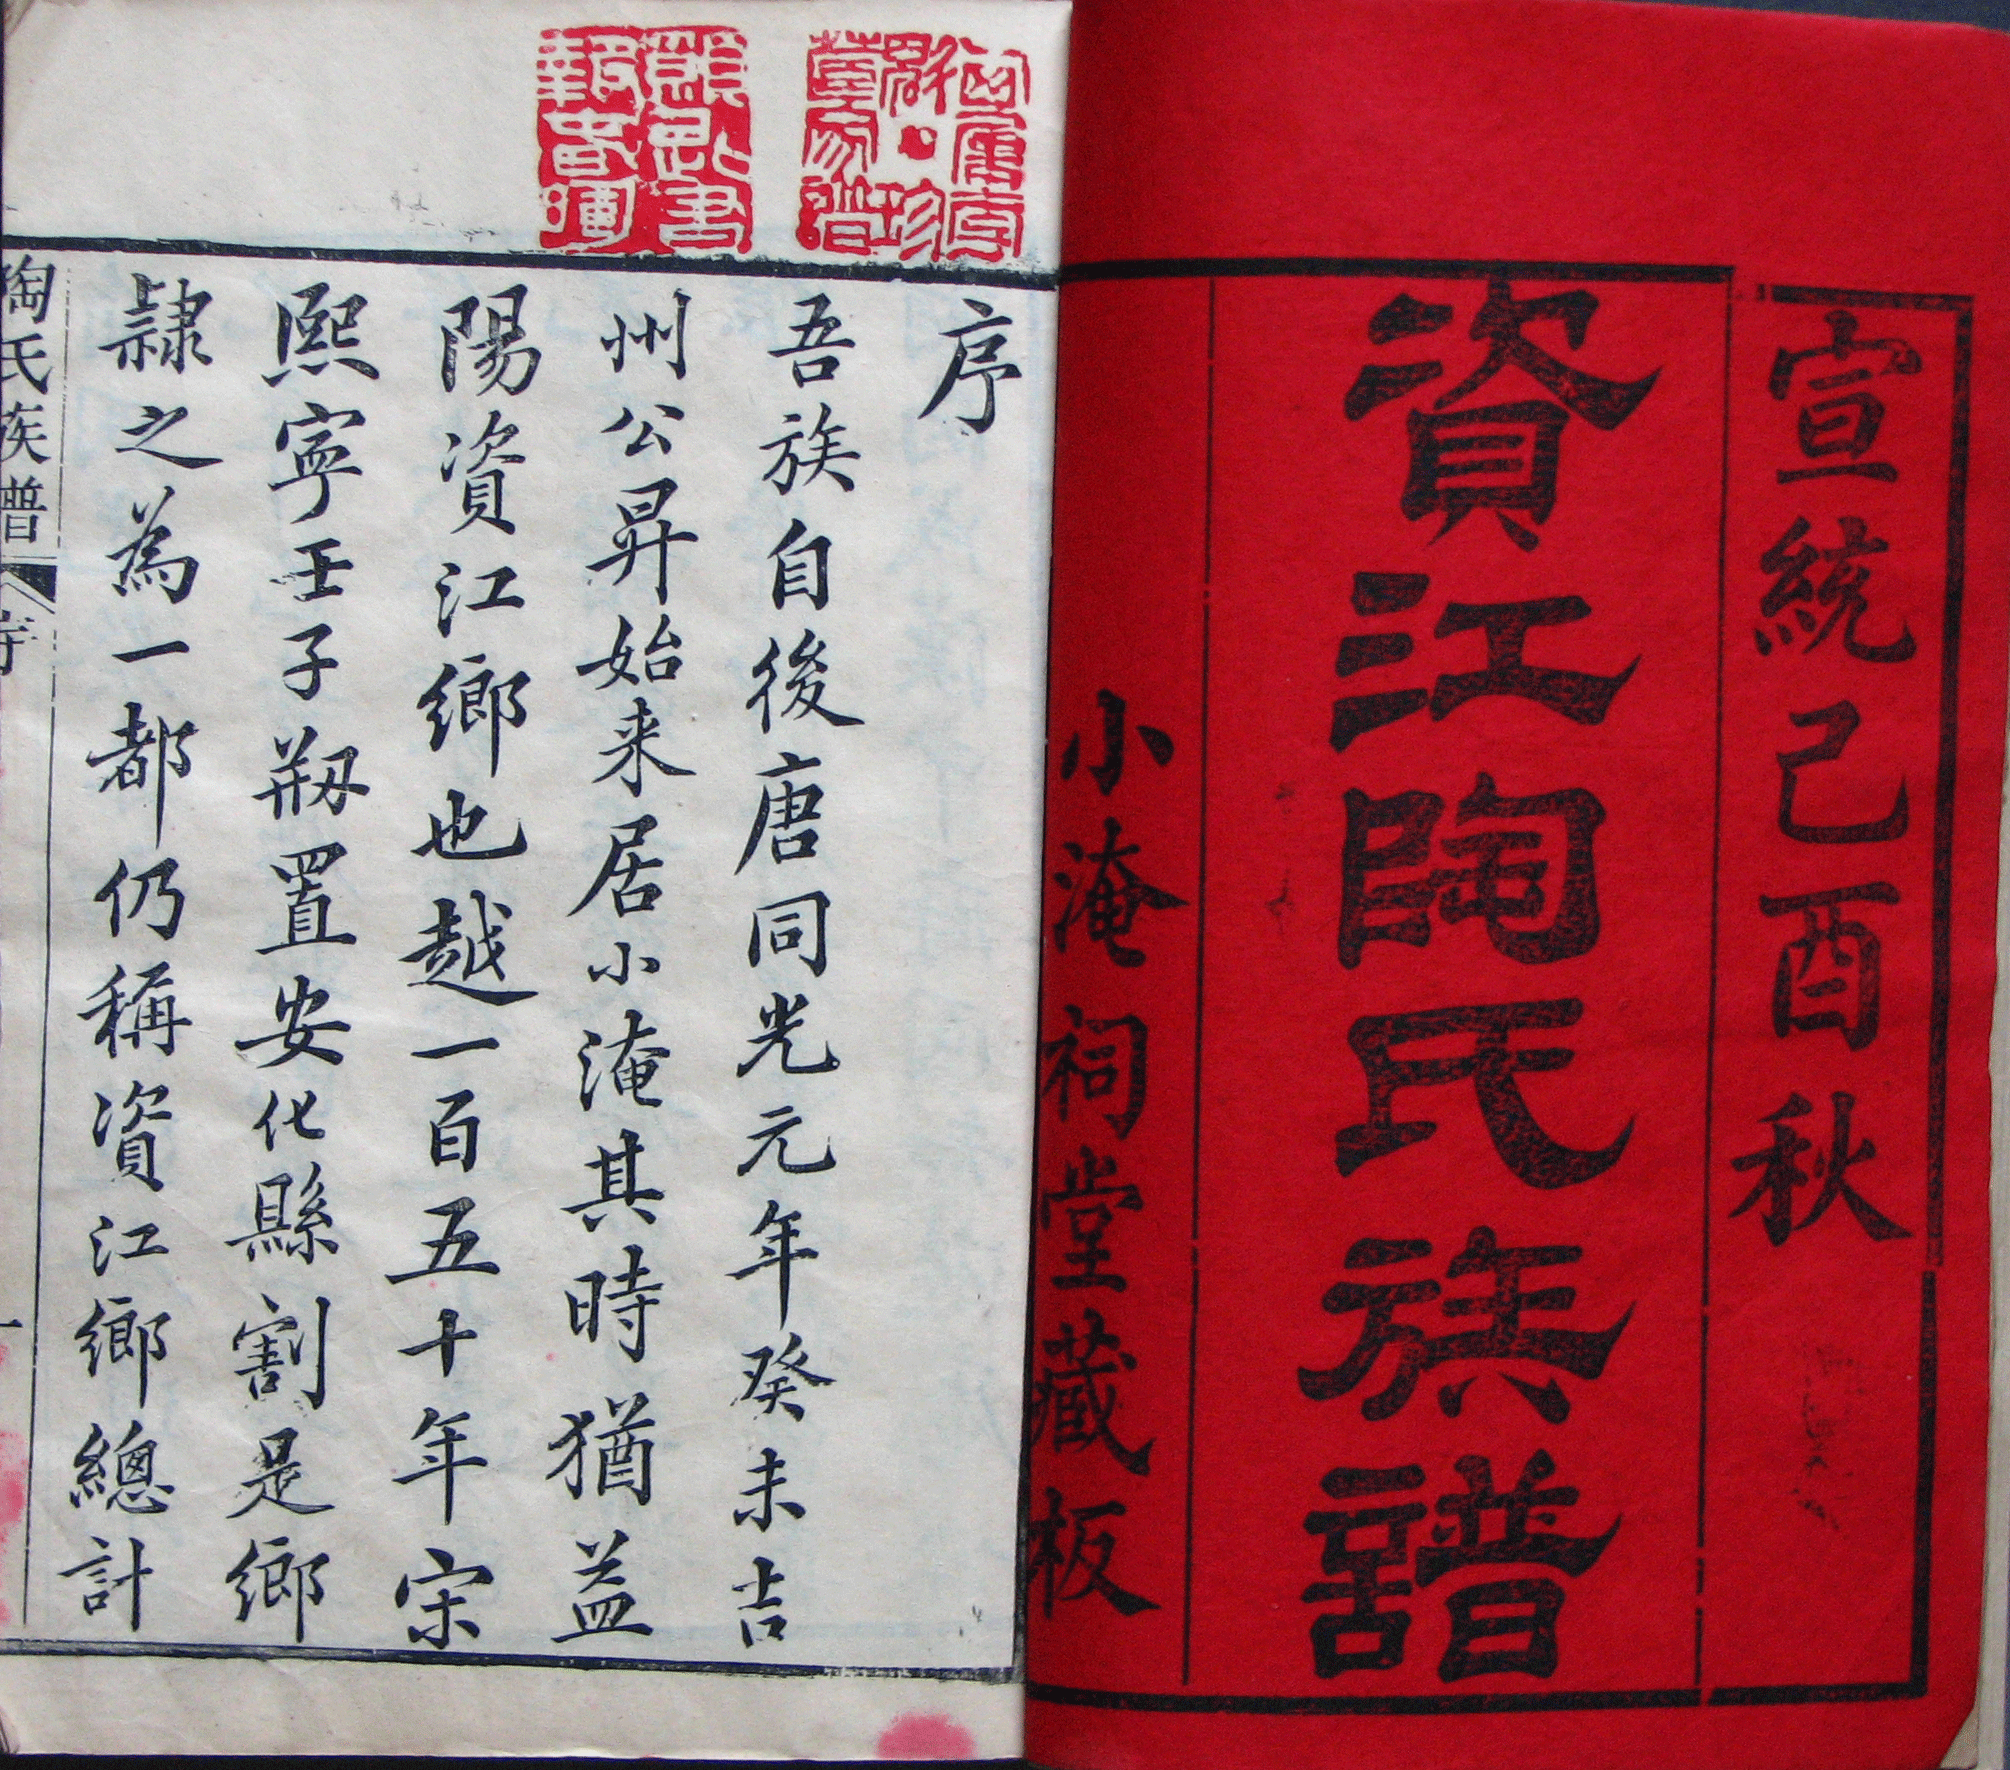 宣統己酉秋
資江陶氏族譜
小淹祠堂藏板
序
吾族自後唐同光元年癸未吉
州公昇始来居小淹其時猶益
陽資江鄉也越一百五十年宋
熙寧壬子剏置安化縣割是鄉
隷之為一都仍稱資江鄉總計
陶氏族譜 序 一